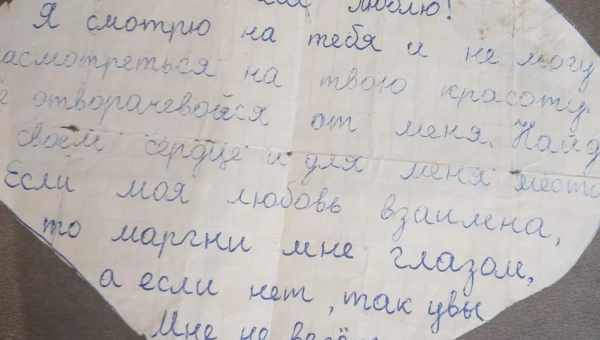 люблю!
Я смотрю на тебя и не могу
асмотреться на твою красоту.
отворачевойся от меня. Найд
своем сердце и для меня место
Если моя любовь взаимна,
то моргни мне глазом,
а если нет, так увы
Мне не